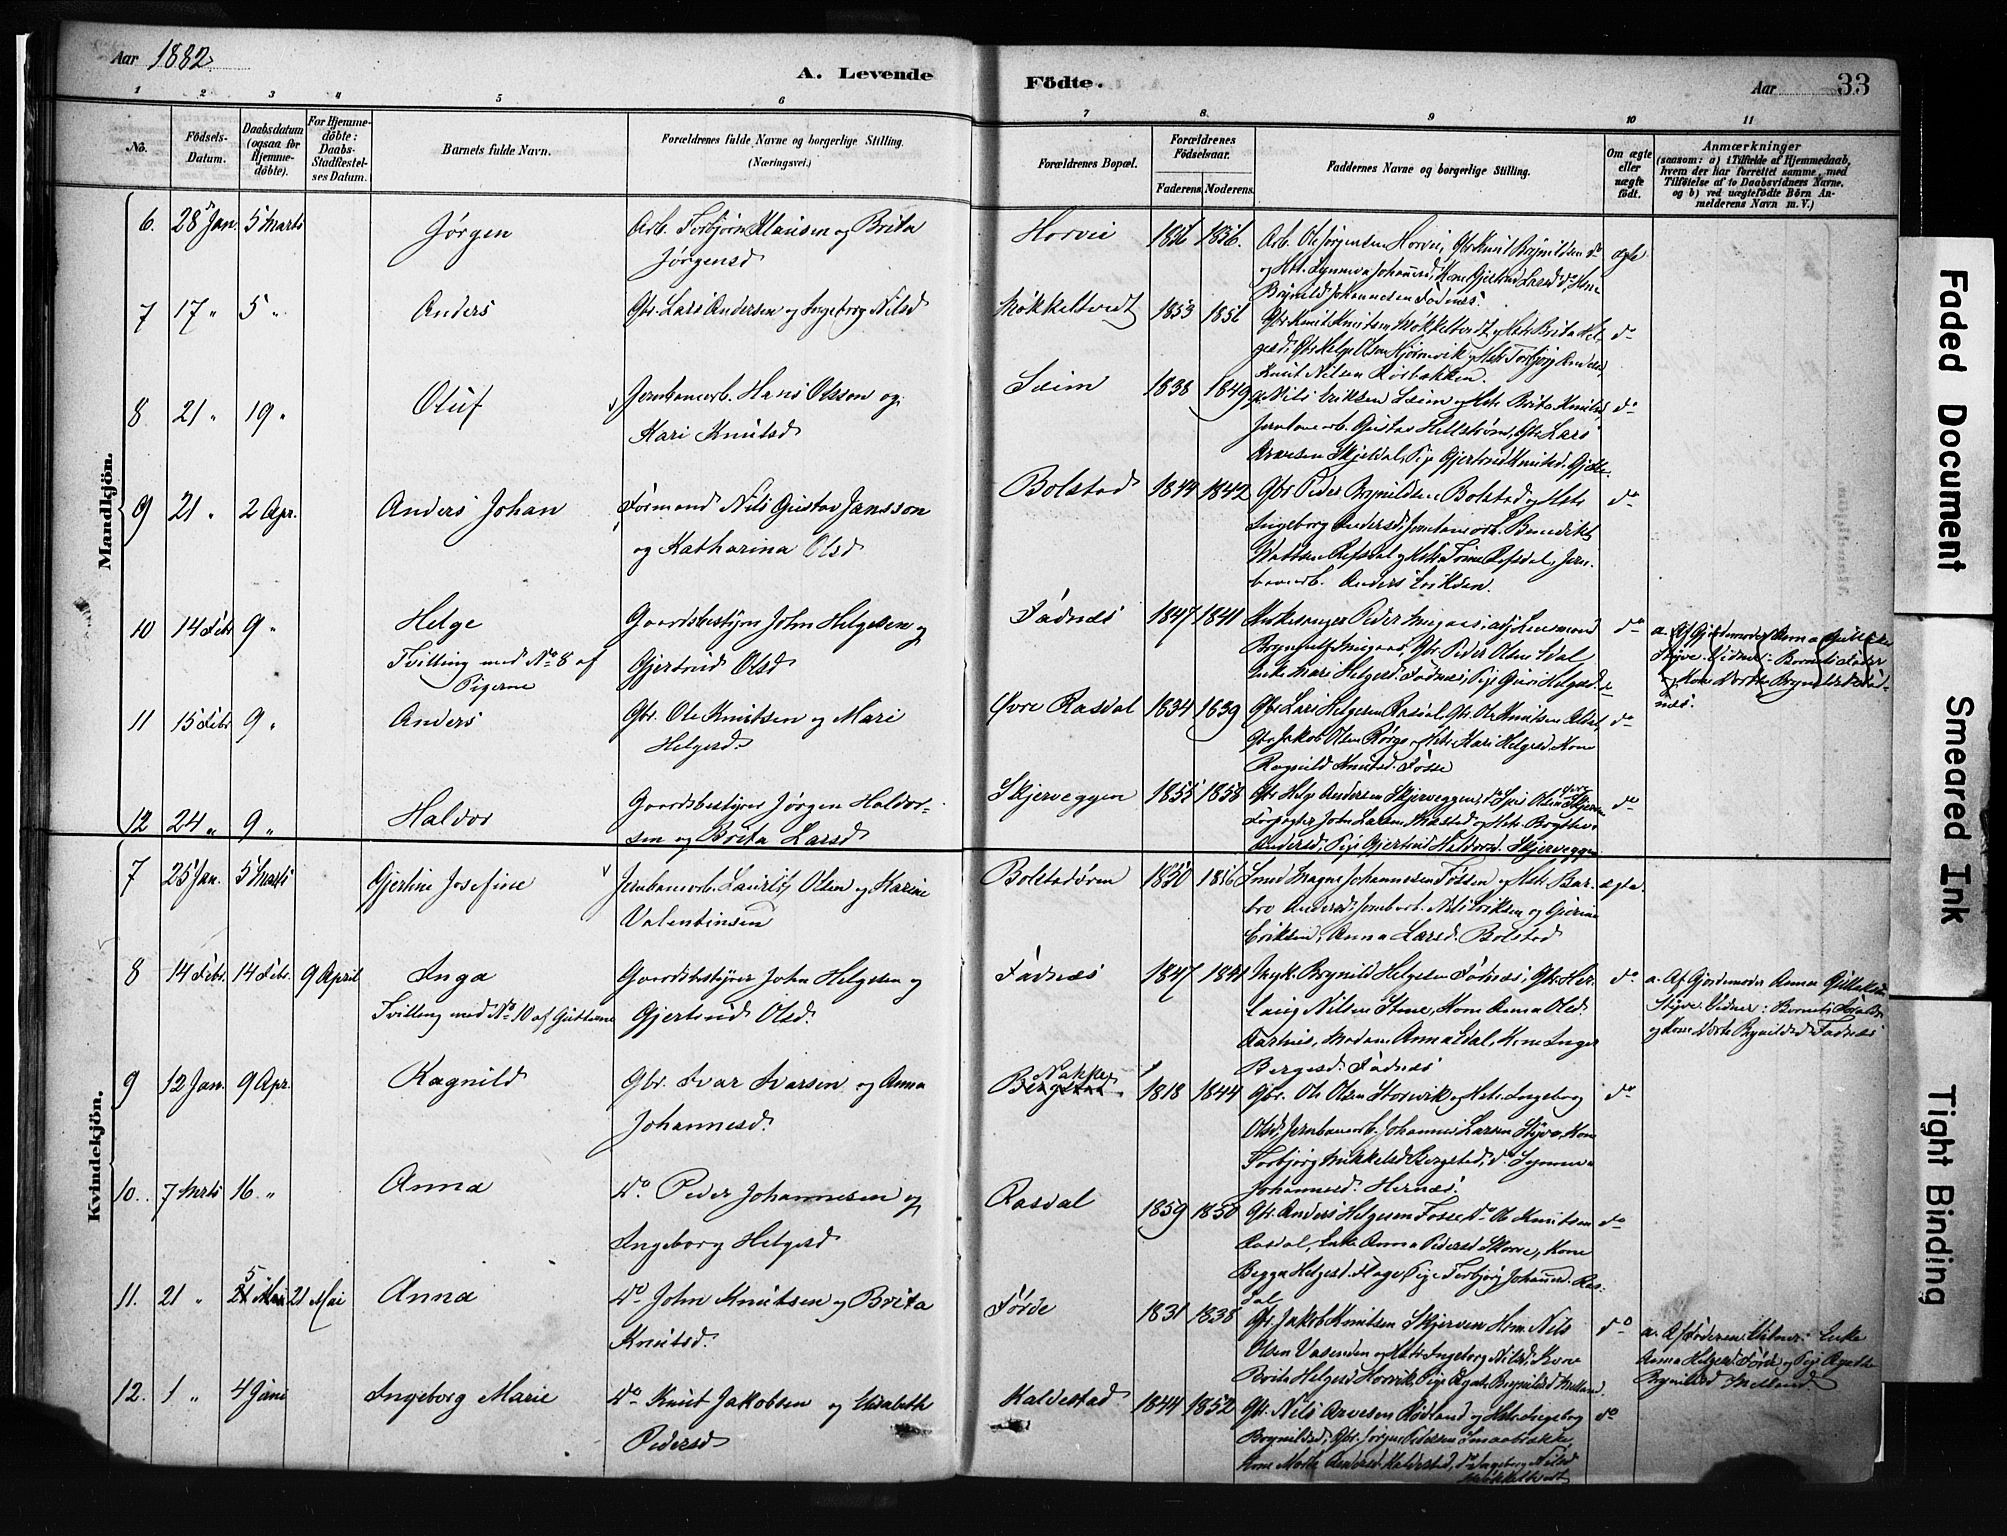 Aar 1882
A. Levende
Födte.
Aar
33
1 2 3 4 5 6 7 8 9 10 11
No.
Födsels-Datum.
Daabsdatum (ogsaa for Hjemme-döbte).
For Hjemme-döbte: Daabs-Stadfæstel-ses Datum.
Barnets fulde Navn.
Forældrenes fulde Navne og borgerlige Stilling. (Næringsvei.)
Forældrenes Bopæl.
Forældrenes Födselsaar.
Faderens. Moderens.
Faddernes Navne og borgerlige Stilling.
Om ægte eller uægte födt.
Anmærkninger
(saasom: a) i Tilfælde af Hjemmedaab, hvem der har forrettet samme, med Tilføielse af to Daabsvidners Navne. og b) ved uægtefödte Börn Anmelderens Navn m. V.)
Mandkjön.
6. 28 Jan. 5 Marts Jørgen Arb. Torbjørn Klausen og Brita
Jørgensd Horvei 1856 1856 Arb. Ole Jørgensen Horvei, Gbr Knut Brynildsen do ægte
og Hst. Synneva Johannesd, Kone Gjertrud Larsd do, Kone
Brynild Johannesen Fadnes.
7 17 " 5 " Anders Gbr. Lars Andersen og Ingeborg Nilsd Møkkeltvedt 1853 1851 Gbr Knut Knutsen Møkkeltvedt og Hst. Brita Hel- do
gesd, Gbr Helge Olsen Hjørnevik og Hst. Torbjørg Andersd,
Knut Nilsen Rørbakken.
8 21 " 19 " Oluf Jernbanearb. Hans Olsson og
Kari Knutsd Seim 1838 1849 Nils Eriksen Seim og Hst. Brita Knutsd, do
Jernbanearb. Gustav Hellstrøm, Gbr Lars
Arvesen Skjeldal, Pige Gjertrud Knutsd. Gjelle.
9 21 " 2 Apr. Anders Johan Formand Nils Gustav Jansson
og Katharina Olsd Bolstad 1844 1842 Gbr Peder Brynildsen Bolstad og Hst. do
Ingeborg Andersd, Jernbanearb. Benedikt
Refsdal og Hst. Refsdal, Jern-
banearb. Anders Eriksen.
10 14 Febr 9 " Helge
Tvilling med No 8 af
Pigerne Gaardsbestyrer John Helgesen og
Gjertrud Olsd Fadnes 1847 1841 Kirkesanger Peder Migaas, adj. Lensmand do
Brynjulf Migaas, Gbr Peder Olsen Sdal
Enke Mari Helgesd. Fadnes, Pige Guri Helgesd. do
a. Af Gjordemoder Anna Gulleiks
Styve. Vidner: Barnets Fader
Kone Dorthe Brynildsd Fad-
nes.
11 15 Febr 9 " Anders Gbr. Ole Knutsen og Mari
Helgesd. Øvre Rasdal 1834 1839 Gbr Lars Helgesen Rasdal, Gbr. Ole Knutsen do
Gbr Jakob Olsen Rørge og Hst. Kari Helgesd, Kone
Ragnild Knutsd. Fosse
12 24 " 9 " Haldor Gaardsbestyrer Jørgen Haldor-
sen og Brita Larsd Skjerveggen 1855 1858 Gbr Helge Andersen Skjerveggen, do Olsen Skjerv do
John Larsen og Hst.
Andersd, Pige Gjertrud Haldorsd. Skjerveggen
Kvindekjön.
7 25 Jan. 5 Marts Gjertine Josefine Jernbanearb. Lauritz Olsen og Karine
Valentinsen Bolstadøren 1850 1856 Smed Magne Johannesen Fossen og Hst. Bar- ægte.
bro Andersd, Jernbarb. Nils Eriksen og
Eriksen, Anna Larsd. Bolstad
8 14 Febr. 14 Febr. 9 April Inga
Tvilling med No 10 af Guttene Gaardsbestyrer John Helgesen og
Gjertrud Olsd. Fadnes 1847 1841 Brynild Helgesen Fadnes, Gbr. Her- do
laug Nilsen Stene, Kone Anna Olsd
Madam Anna Sdal, Kone Inger
Bergesd. Fadnes
a. Af Gjordemoder Anna Gulleiksd
Styve. Vidner: Barnets Forældr
og Kone Dorte Brynildsd Fadnes
9 12 Jan. 9 Apr. Ragnild Gbr. Ivar Ivarsen og Anna
Johannesd. Bergstad Nakke 1818 1844 Gbr. Ole Olsen Horvik og Hst. Ingeborg do
Olsd, Jernbanearb. Johannes Larsen Styve, Kone
Torbjørg Mikkelsd Bergstad, do Synneva
Johannesd. Hernes.
10. 7 Marts 16 " Anna do Peder Johannesen og
Ingeborg Helgesd Rasdal 1859 1850 Gbr. Anders Helgesen Fosse, do Ole Knutsen do
Rasdal, Enke Anna Pedersd Skorve, Kone
Begga Helgesd. Flage, Pige Torbjørg Johannesd. Ras-
dal
11. 21 " 5 Mai 21 Mai Anna do John Knutsen og Brita
Knutsd. Førde 1831 1838 Gbr. Jakob Knutsen Skjerven, Nils do
Olsen Vasenden og Hst. Ingeborg Nilsd, Kone
Brita Helgesd Horvik, Pige Agate Brynildsd Melland.
a. Af Vidner: Enke
Anna Helgesd Førde og Pige Agathe
Brynildsd Melland
12. 1 " 4 Juni Ingeborg Marie do Knut Jakobsen og Elisabeth
Pedersd Kaldestad 1844 1852 Gbr. Nils Arvesen Rødland og Hst. Ingeborg do
Brynildsd, Gbr. Jørgen Pedersen Smaabrække,
Kone Marte Andersd. Kaldestad, do Ingeborg Nilsd
Møkkeltvedt
Faded Document
Smeared Ink
Tight Binding